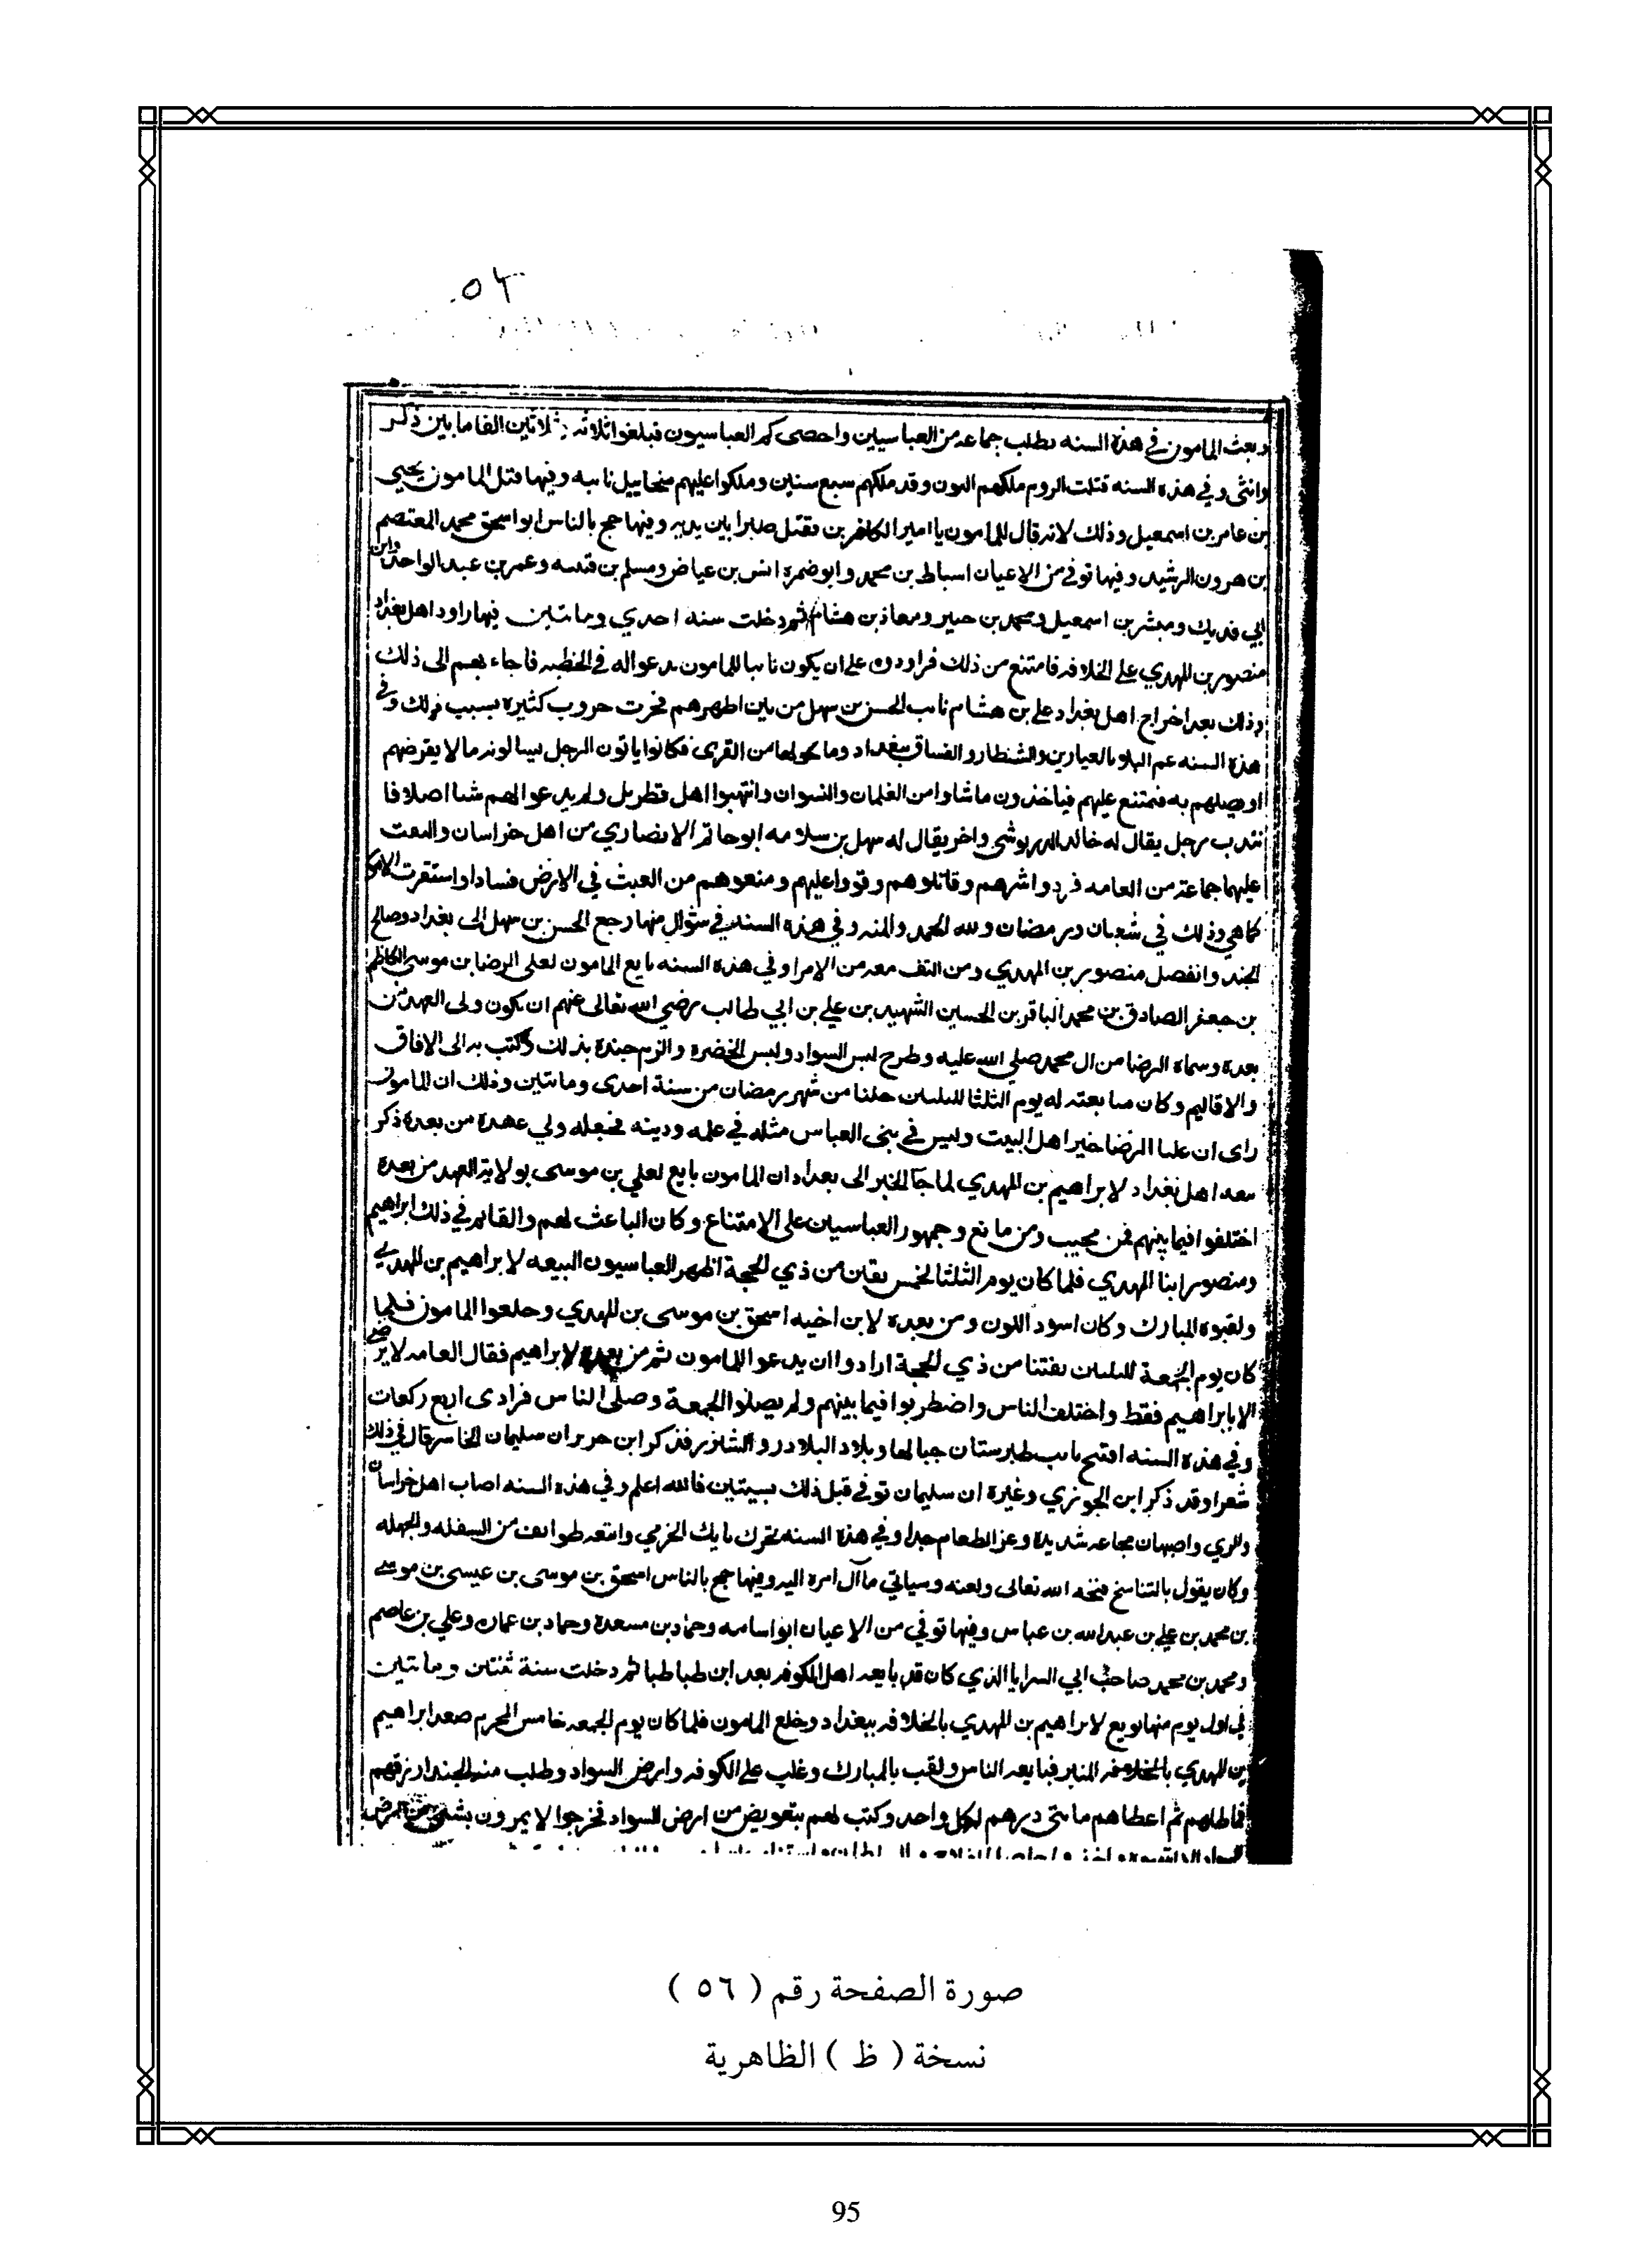 ٥٦
وبعث المامون في هذه السنه بطلب جماعه من العباسيين واحصى كم العباسيون فبلغوا ثلاثه ثلاثين الفا ما بين ذكر
وانثى وفي هذه السنه قتلت الروم ملكهم اليون وقد ملكهم سبع سنين وملكوا عليهم ميخاييل نايبه وفيها قتل المامون يحيى
بن عامر بن اسمعيل وذلك لانه قال للمامون يا امير الكافرين فقتل صبرا بين يديه وفيها حج بالناس ابو اسحق محمد المعتصم
بن هرون الرشيد وفيها توفي من الاعيان اسباط بن محمد وابو ضمره انس بن عياض ومسلم بن قتيبه وعمر بن عبد الواحد وابن
ابي فديك ومبشر بن اسمعيل ومحمد بن حمير ومعاذ بن هشام ثم دخلت سنه احدي وماتين فيها راود اهل بغداد
منصور بن المهدي على الخلافه فامتنع من ذلك فراودوه على ان يكون نايبا للمامون يدعوا له في الخطبه فاجابهم الى ذلك
وذلك بعد اخراج اهل بغداد علي بن هشام نايب الحسن بن سهل من بين اظهرهم فجرت حروب كثيره بسبب ذلك وفي
هذه السنه عم البلا بالعيارين والشطار والفساق ببغداد وما حولها من القرى فكانوا ياتون الرجل يسالونه مالا يقرضهم
او يصلهم به فيمتنع عليهم فياخذون ما شاوا من الغلمان والنسوان وانتهبوا اهل قطربل ولم يدعوا لهم شيا اصلا فا
نتدب رجل يقال له خالد الدريوشي واخر يقال له سهل بن سلامه ابو حاتم الانصاري من اهل خراسان والتفت
عليهما جماعة من العامه فردوا شرهم وقاتلوهم وقووا عليهم ومنعوهم من العبث في الارض فسادا واستقرت الامور
كما هي وذلك في شعبان ورمضان ولله الحمد والمنه وفي هذه السنه في شوال منها رجع الحسن بن سهل الى بغداد وصالح
الجند وانفصل منصور بن المهدي ومن التف معه من الامرا وفي هذه السنه بايع المامون لعلي الرضا بن موسى الكاظم
بن جعفر الصادق بن محمد الباقر بن الحسين الشهيد بن علي بن ابي طالب رضي الله تعالى عنهم ان يكون ولي العهد من
بعده وسماه الرضا من ال محمد صلى الله عليه وطرح لبس السواد ولبس الخضره والزم جنده بذلك وكتب به الى الافاق
والاقاليم وكان مبايعته له يوم الثلثا لليلتين خلتا من شهر رمضان من سنة احدى وماتين وذلك ان المامون
راى ان عليا الرضا خير اهل البيت وليس في بني العباس مثله في علمه ودينه فجعله ولي عهده من بعده ذكر
بيعه اهل بغداد لابراهيم بن المهدي لما جآ الخبر الى بغداد ان المامون بايع لعلي بن موسى بولاية العهد من بعده
اختلفوا فيما بينهم فمن مجيب ومن مانع وجمهور العباسيين على الامتناع وكان الباعث لهم والقايم في ذلك ابراهيم
ومنصور ابنا المهدي فلما كان يوم الثلثا لخمس بقين من ذي الحجة اظهر العباسيون البيعه لابراهيم بن المهدي
ولقبوه المبارك وكان اسود اللون ومن بعده لابن اخيه اسحق بن موسى بن المهدي وخلعوا المامون فلما
كان يوم الجمعة لليلتين بقيتا من ذي الحجة ارادوا ان يدعوا للمامون ثم من بعده لابراهيم فقال العامه لا نرضى
الا بابراهيم فقط واختلف الناس واضطربوا فيما بينهم ولم يصلوا الجمعة وصلى الناس فرادى اربع ركعات
وفي هذه السنه افتتح نايب طبرستان جبالها وبلاد اللادر والشارز فذكر ابن جرير ان سليمان الخاسر قال في ذلك
شعرا وقد ذكر ابن الجوزي وغيره ان سليمان توفي قبل ذلك بسنتين فالله اعلم وفي هذه السنه اصاب اهل خراسان
والري واصبهان مجاعه شديدة وعز الطعام جدا وفي هذه السنه تحرك بابك الخرمي واتبعه طوايف من السفله والجهله
وكان يقول بالتناسخ قبحه الله تعالى ولعنه وسياتي مآل امره اليه وفيها حج بالناس اسحق بن موسى بن عيسى بن موسى
بن محمد بن علي بن عبد الله بن عباس وفيها توفي من الاعيان ابو اسامه وحماد بن مسعدة وحماد بن عماره وعلي بن عاصم
ومحمد بن محمد صاحب ابي السرايا الذي كان قد بايعه اهل الكوفه بعد ابن طباطبا ثم دخلت سنة ثنتين وماتين
في اول يوم منها بويع لابراهيم بن المهدي بالخلافه ببغداد وخلع المامون فلما كان يوم الجمعه خامس المحرم صعد ابراهيم
بن المهدي المنبر فبايعه الناس ولقب بالمبارك وغلب على الكوفه وارض السواد وطلب منه الجند ارزاقهم
فماطلهم ثم اعطاهم مايتي درهم لكل واحد وكتب لهم بتعويض من ارض السواد فخرجوا لا يمرون بشي
صورة الصفحة رقم ( ٥٦ )
نسخة ( ظ ) الظاهرية
95